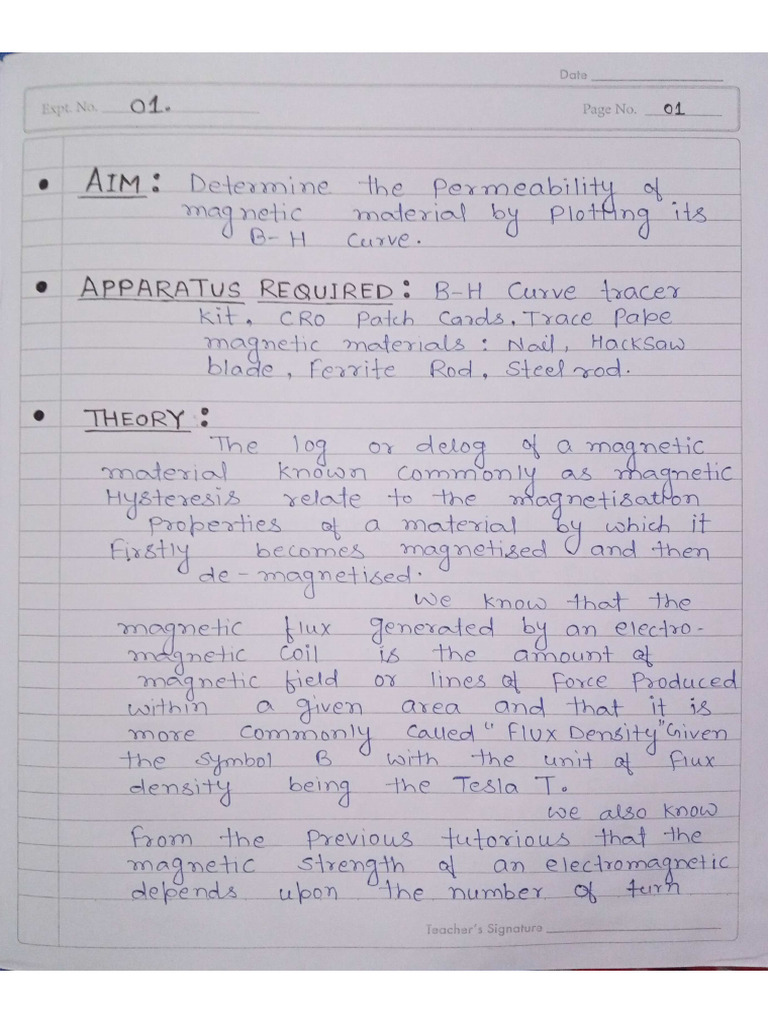 Date
Expt. No. 01.
Page No. 01
• AIM: Determine the permeability of
magnetic material by plotting its
B-H curve.
• APPARATUS REQUIRED: B-H Curve tracer
kit, CRO Patch Cards, Trace Pape
magnetic materials: Nail, Hacksaw
blade, Ferrite Rod, Steel rod.
• THEORY:
The log or delog of a magnetic
material known commonly as magnetic
Hysteresis relate to the magnetisation
properties of a material by which it
Firstly becomes magnetised and then
de-magnetised.
we know that the
magnetic flux generated by an electro-
magnetic coil is the amount of
magnetic field or lines of force produced
within a given area and that it is
more commonly called "Flux Density" Given
the symbol B with the unit of flux
density being the Tesla T.
we also know
from the previous tutorious that the
magnetic strength of an electromagnetic
depends upon the number of turn
Teacher's Signature